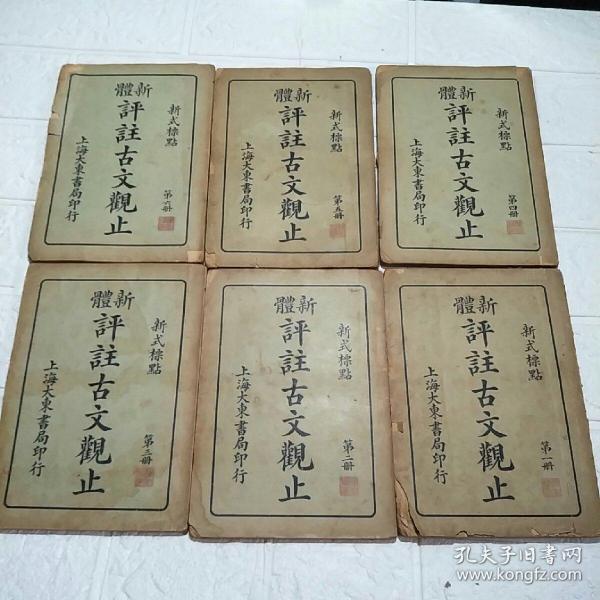 新式標點
新體
評註古文觀止
第六册
上海大東書局印行
新式標點
新體
評註古文觀止
第五册
上海大東書局印行
新式標點
新體
評註古文觀止
第四册
上海大東書局印行
新式標點
新體
評註古文觀止
第三册
上海大東書局印行
新式標點
新體
評註古文觀止
第二册
上海大東書局印行
新式標點
新體
評註古文觀止
第一册
上海大東書局印行
孔夫子旧书网
www.kongfz.com